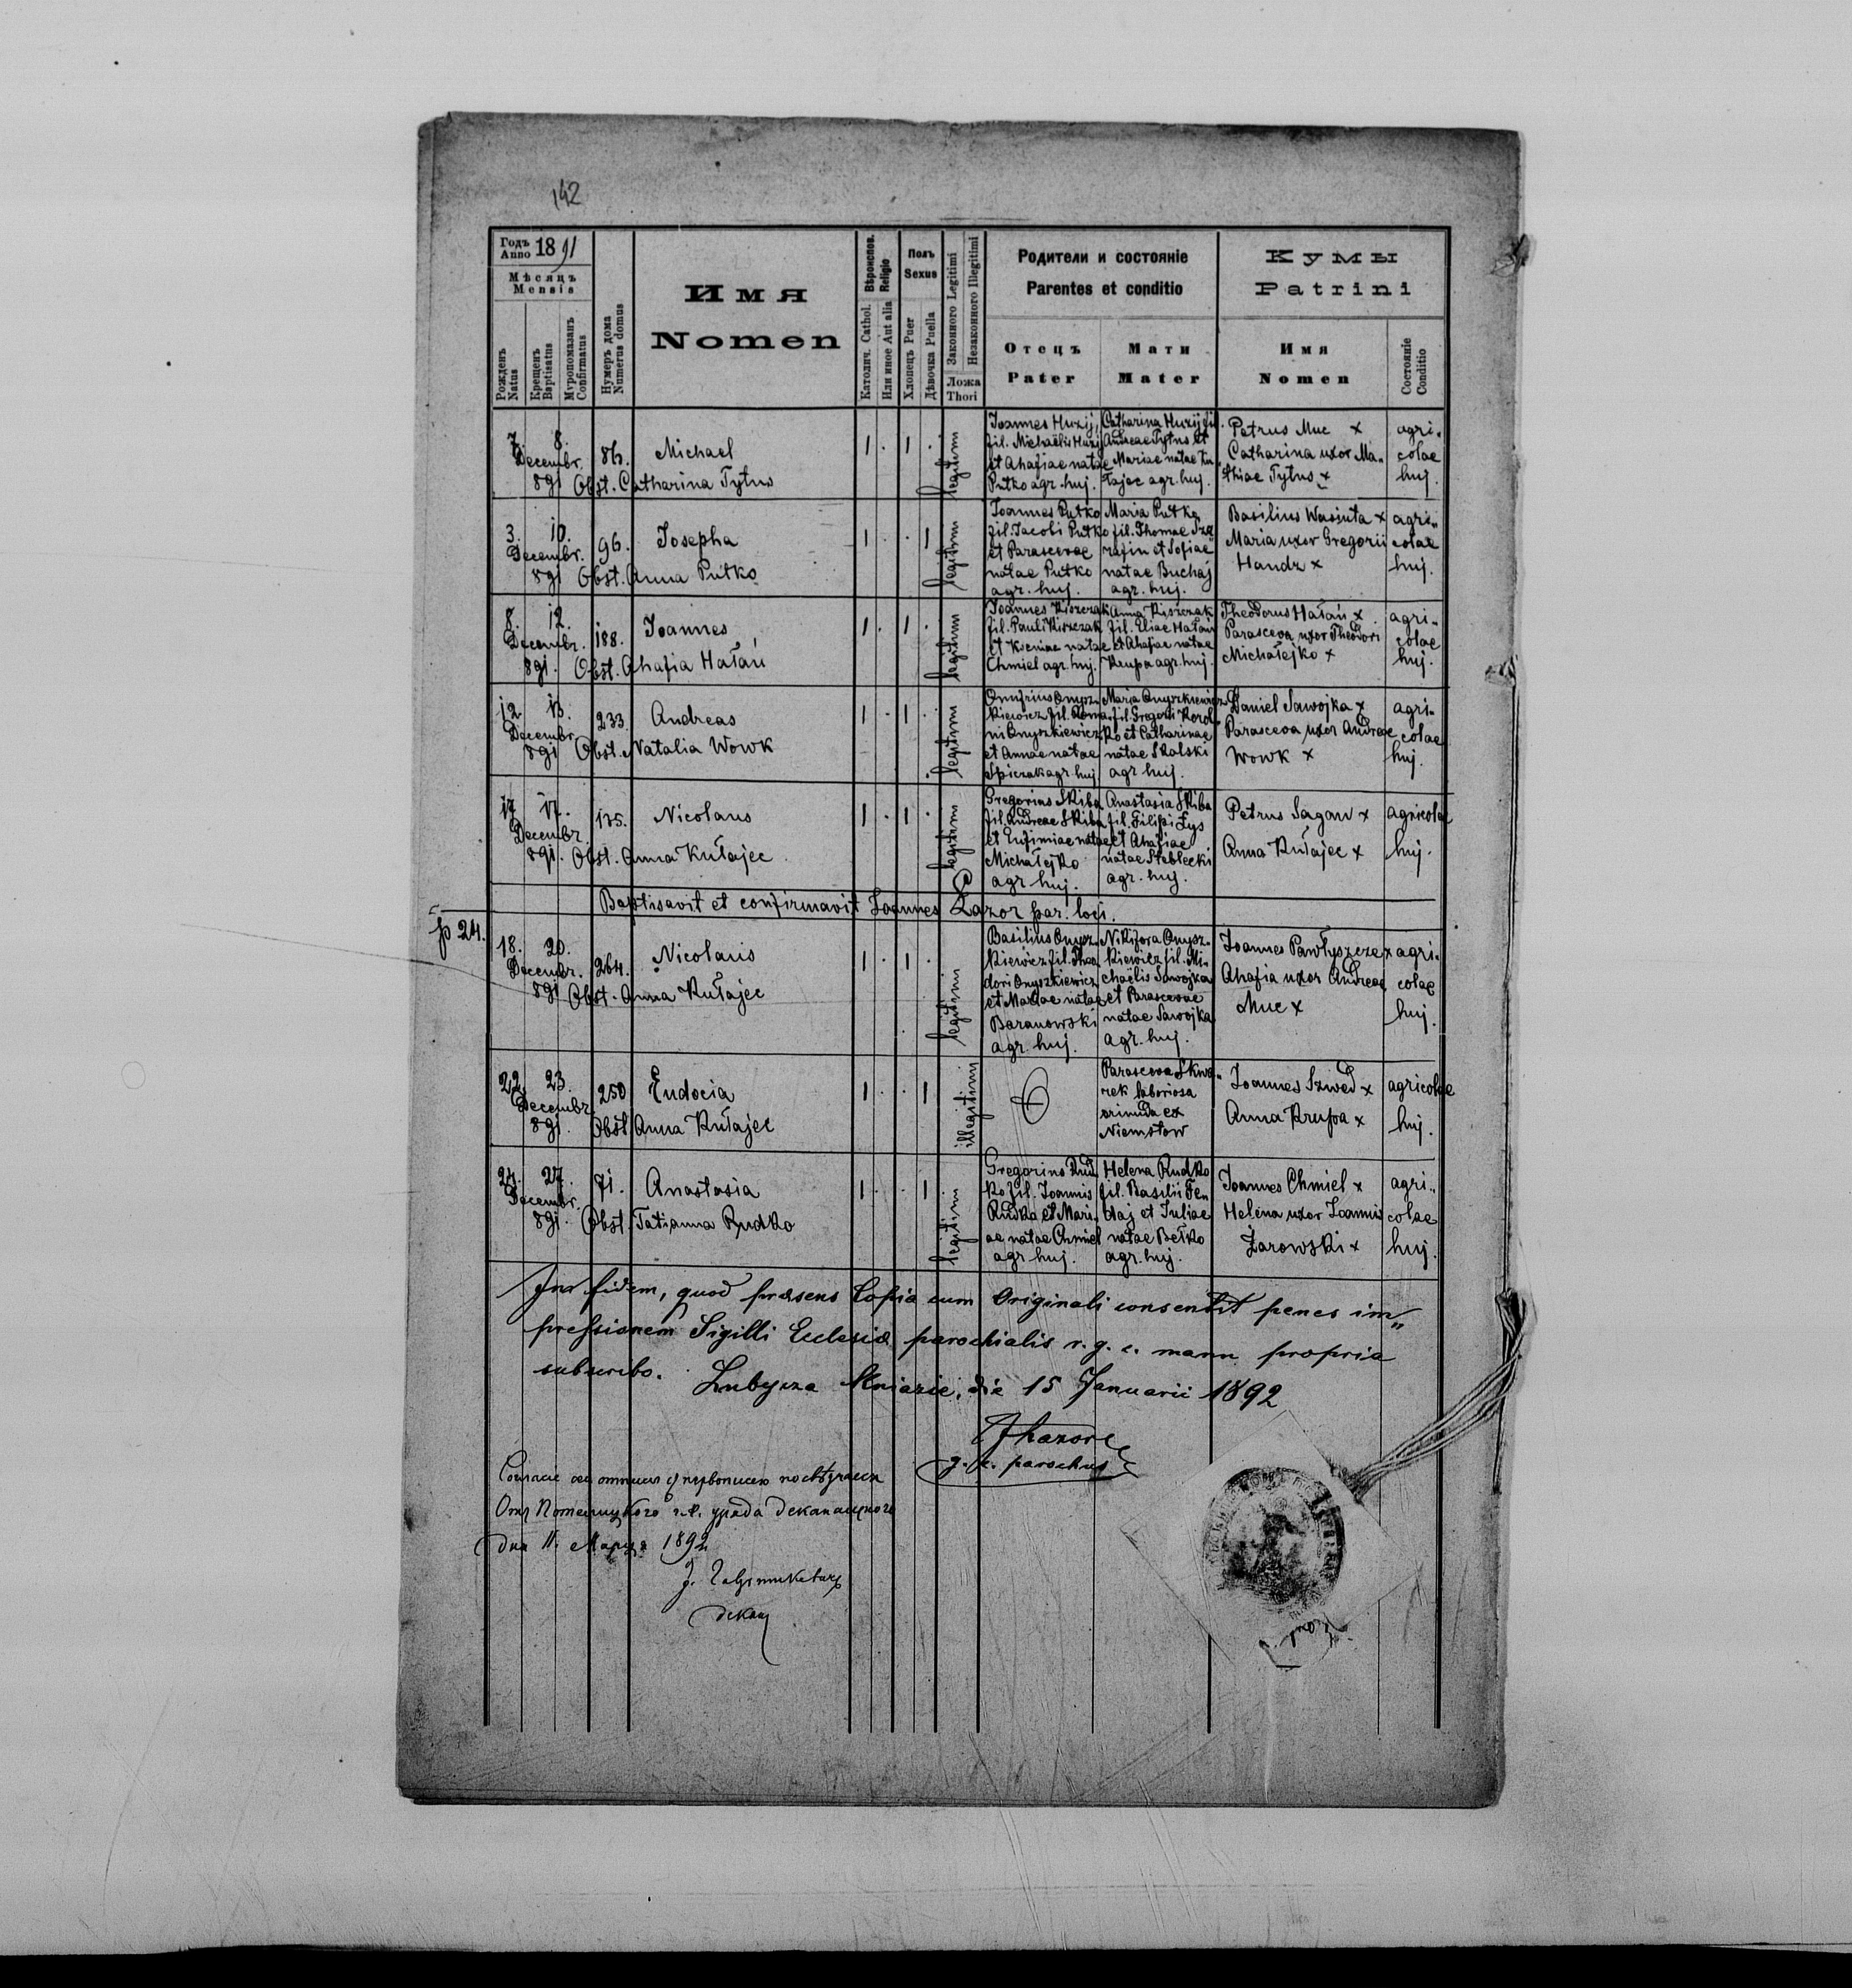 142
Годъ Anno 1891
Мѣсяцъ
Mensis
Рожденъ Natus
Крещенъ Baptisatus
Мѵропомазанъ Confirmatus
Нумеръ дома Numerus domus
Имя
Nomen
Вѣроиспов. Religio
Католич. Cathol.
Или иное Aut alia
Полъ
Sexus
Хлопецъ Puer
Дѣвочка Puella
Законного Legitimi
Незаконного Illegitimi
Ложа
Thori
Родители и состояніе
Parentes et conditio
Отецъ
Pater
Мати
Mater
Кумы
Patrini
Имя
Nomen
Состояніе
Conditio
7. 8. Decembr. 891
86.
Michael
Obst. Catharina Tytus
1 . 1 .
legitimi
Joannes Huzij,
fil. Michaëlis Huzij
et Ahafiae natae
Putko agr. huj.
Catharina Huzij fil.
Andreae Tytus et
Mariae natae Ku
łajec agr. huj.
Petrus Muc x
Catharina uxor Ma„
thiae Tytus x
agri„
colae
huj.
3. 10. Decembr. 891
96.
Josepha
Obst. Anna Putko
1 . . 1
legitimi
Joannes Putko
fil. Jacobi Putko
et Parascevae
natae Putko
agr. huj.
Maria Putko
fil. Thomae
et Sofiae
natae Buchaj
agr. huj.
Basilius Wasiuta x
Maria uxor Gregorii
Handz x
agri„
colae
huj.
8. 12. Decembr. 891.
188.
Joannes
Obst. Ahafia Hałań
1 . 1 .
legitimi
Joannes Kiszczak
fil. Pauli Kiszczak
et Kseniae natae
Chmiel agr. huj.
Anna Kiszczak
fil. Eliae Hałań
et Ahafiae natae
Krupa agr. huj.
Theodorus Hałań x
Parasceva uxor Theodori
Michałejko x
agri-
colae
huj.
12 13. Decembr. 891
233.
Andreas
Obst. Natalia Wowk
1 . 1 .
legitimi
Onufrius Onysz„
kiewicz fil. Roma„
ni Onyszkiewicz
et Annae natae
Spiczak agr. huj.
Maria Onyszkiewicz
fil. Gregorii Korol„
ko et Catharinae
natae Skolski
agr. huj.
Daniel Sawojka x
Parasceva uxor Andreae
Wowk x
agri-
colae
huj.
17 17. Decembr. 891.
175.
Nicolaus
Obst. Anna Kułajec
1 . 1 .
legitimi
Gregorius Skiba
fil. Andreae Skiba
et Eufimiae natae
Michałejko
agr. huj.
Anastasia Skiba
fil. Filipi Łys
et Ahafiae
natae Steblecki
agr. huj.
Petrus Sagan x
Anna Kułajec x
agricolae
huj.
Baptisavit et confirmavit Joannes Lazor par. loci.
p 24.
18. 20. Decembr. 891
264.
Nicolaus
Obst. Anna Kułajec
1 . 1 .
legitimi
Basilius Onysz„
kiewicz fil. Theo„
dori Onyszkiewicz
et Mariae natae
Baranowski
agr. huj.
Nikifora Onysz„
kiewicz fil. Mi„
chaëlis Sawojka
et Parascevae
natae Sawojka
agr. huj.
Joannes Pawłyszcze x
Ahafia uxor Andreae
Muc x
agri-
colae
huj.
22. 23. Decembr. 891.
250
Eudocia
Obst. Anna Kułajec
1 . . 1
illegitimi
Parasceva Skwo„
rek laboriosa
oriunda ex
Niemstow
Joannes Szwed x
Anna Krupa x
agricolae
huj.
24. 27. Decembr. 891.
71.
Anastasia
Obst. Tatianna Rudko
1 . . 1
legitimi
Gregorius Rud
ko fil. Joannis
Rudko et Mari
ae natae Chmiel
agr. huj.
Helena Rudko
fil. Basilii Fen
daj et Juliae
natae Bełko
agr. huj.
Joannes Chmiel x
Helena uxor Joannis
Żarowski x
agri„
colae
huj.
In fidem, quod præsens Copia cum Originali consentit penes im„
pressionem Sigilli Ecclesiæ parochialis r. g. c. manu propria
subscribo. Lubycza Kniazie, die 15 Januarii 1892
J Lazor
g. c. parochus
декан
дня 11. Марца 1892